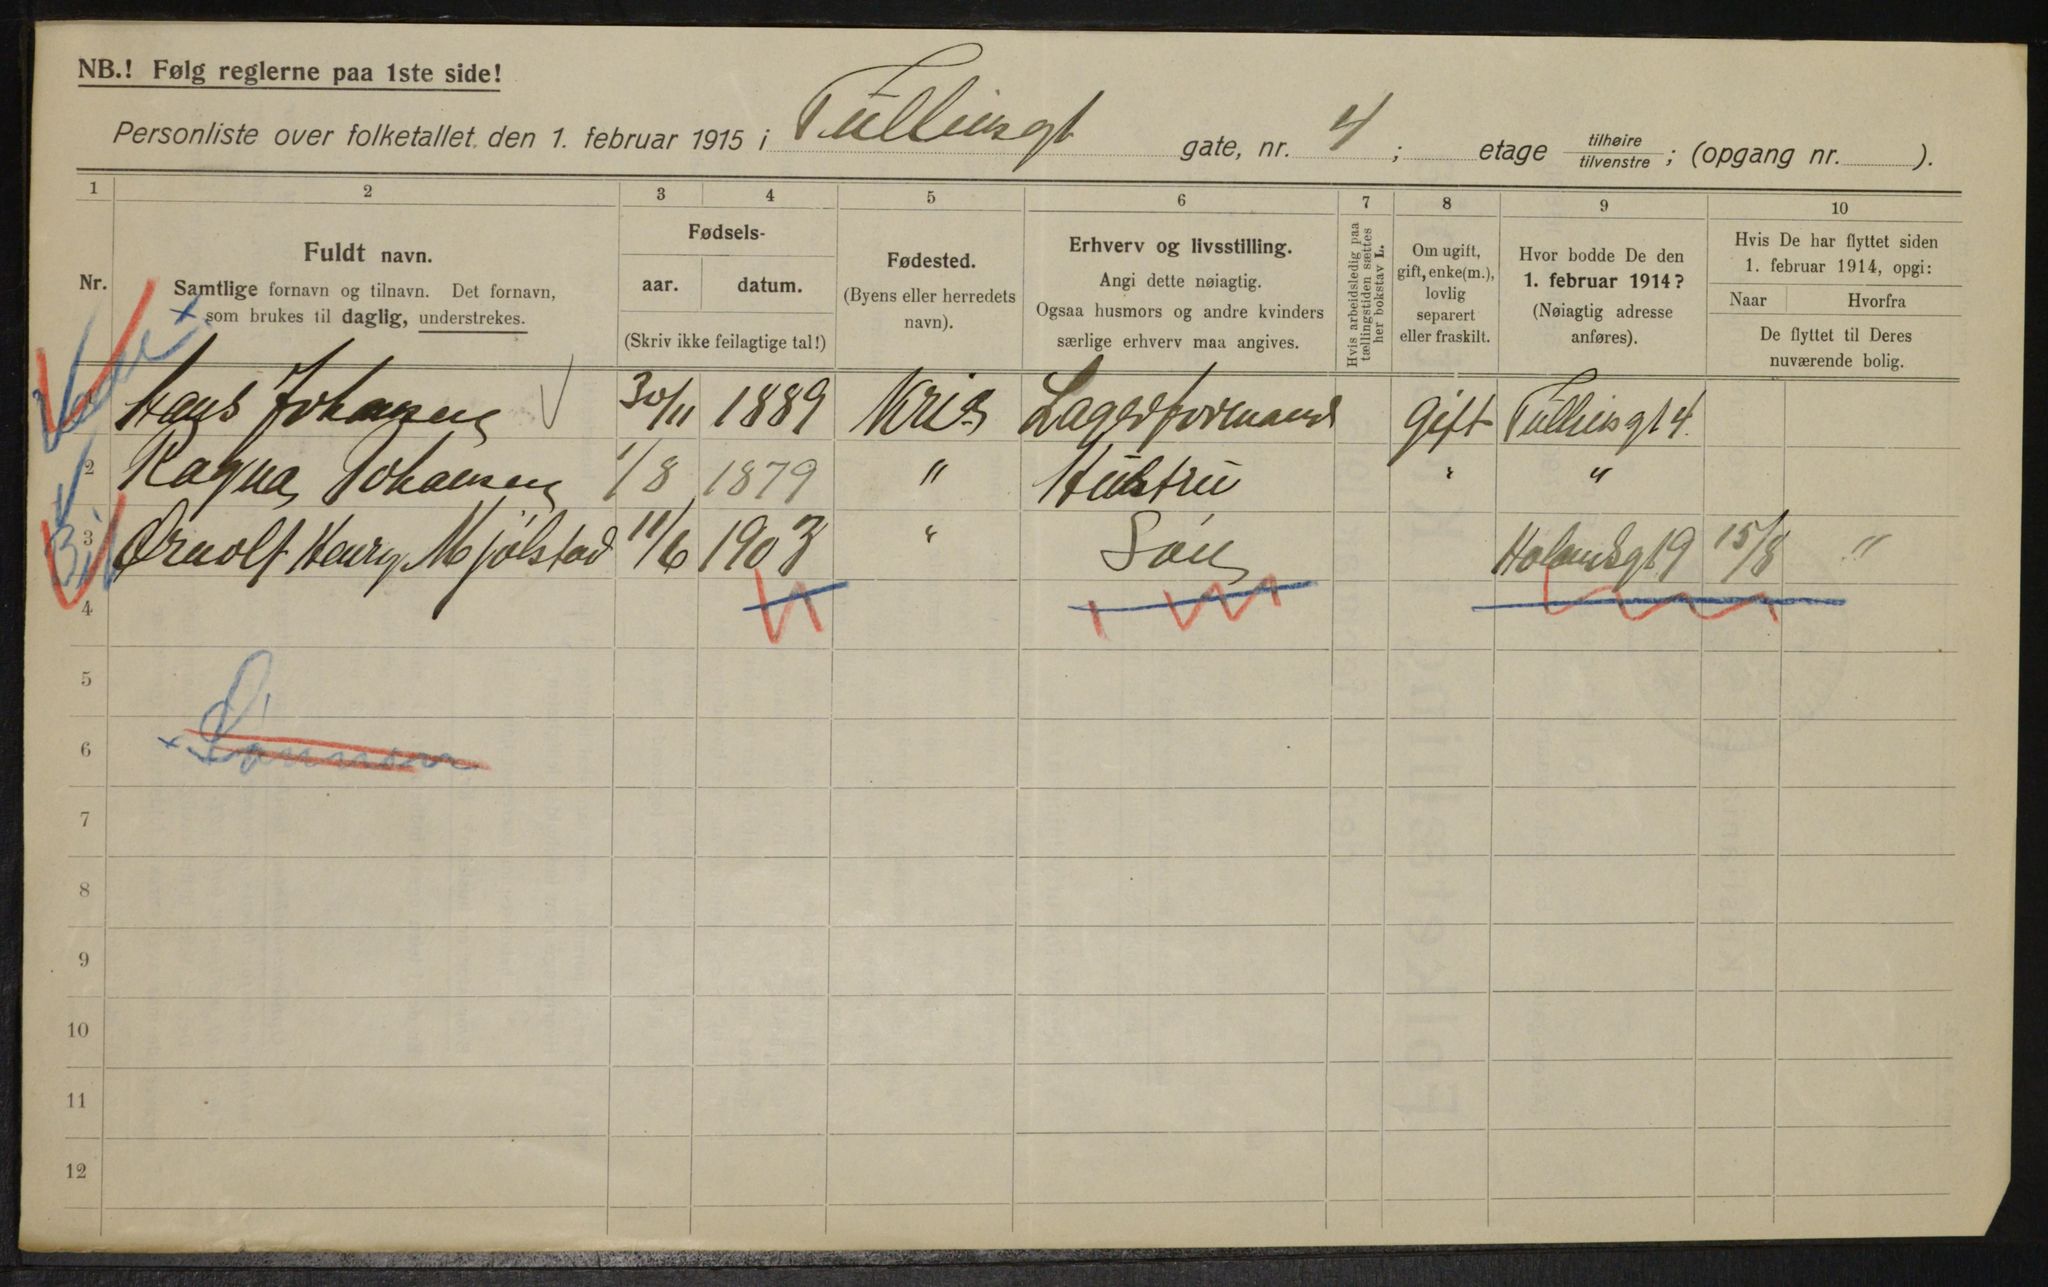 NB.! Følg reglerne paa 1ste side!
Personliste over folketallet den 1. februar 1915 i Tullinsgt gate, nr. 4 ; etage tilhøire tilvenstre ; (opgang nr. ).
1 2 3 4 5 6 7 8 9 10
Nr.
Fuldt navn.
Samtlige fornavn og tilnavn. Det fornavn,
som brukes til daglig, understrekes.
Fødsels-
aar. datum.
(Skriv ikke feilagtige tal!)
Fødested.
(Byens eller herredets
navn).
Erhverv og livsstilling.
Angi dette nøiagtig.
Ogsaa husmors og andre kvinders
særlige erhverv maa angives.
Hvis arbeidsledig paa
tællingstiden sættes
her bokstav L.
Om ugift,
gift, enke(m.),
lovlig
separert
eller fraskilt.
Hvor bodde De den
1. februar 1914?
(Nøiagtig adresse
anføres).
Hvis De har flyttet siden
1. februar 1914, opgi:
Naar Hvorfra
De flyttet til Deres
nuværende bolig.
1 Hans Johansen 30/11 1889 Kria Lagerformand gift Tullinsgt 4.
2 Ragna Johansen 1/8 1879 " Hustru " "
3 Arnolf Henry Mjølstad 11/6 1903 " Søn Holmsgt 9 15/8 "
4
5
6
7
8
9
10
11
12